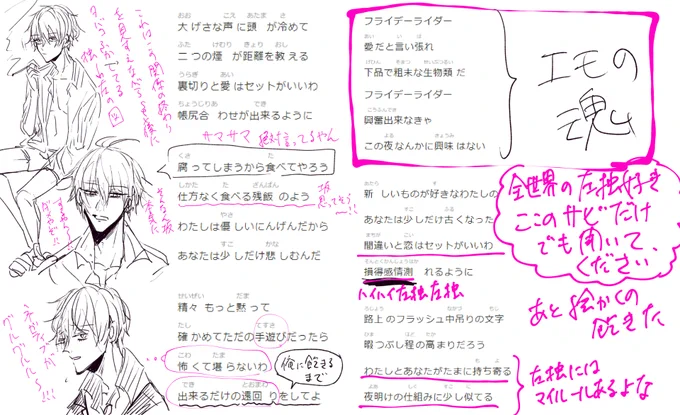 大げさな声に頭が冷めて
二つの煙が距離を教える
裏切りと愛はセットがいいわ
帳尻合わせが出来るように
サマサマ 絶対言ってるやん
腐ってしまうから食べてやろう
仕方なく食べる残飯のよう
わたしは優しいにんげんだから
あなたは少しだけ悲しむんだ
精々もっと黙って
確かめてただの手遊びだったら
怖くて堪らないわ
俺に飽きるまで
出来るだけの遠回りをしてよ
フライデーライダー
愛だと言い張れ
下品で粗末な生物類だ
フライデーライダー
興奮出来なきゃ
この夜なんかに興味はない
エモの
魂
新しいものが好きなわたしの
あなたは少しだけ古くなった
間違いと恋はセットがいいわ
損得感情測れるように
ハイハイ左独左独
路上のフラッシュ中吊りの文字
暇つぶし程の高まりだろう
わたしとあなたがたまに持ち寄る
夜明けの仕組みに少し似てる
全世界の左独好き
ここのサビだけ
でも聞いて、
ください
あと絵かくの
飽きた
左独には
マイルールあるよな